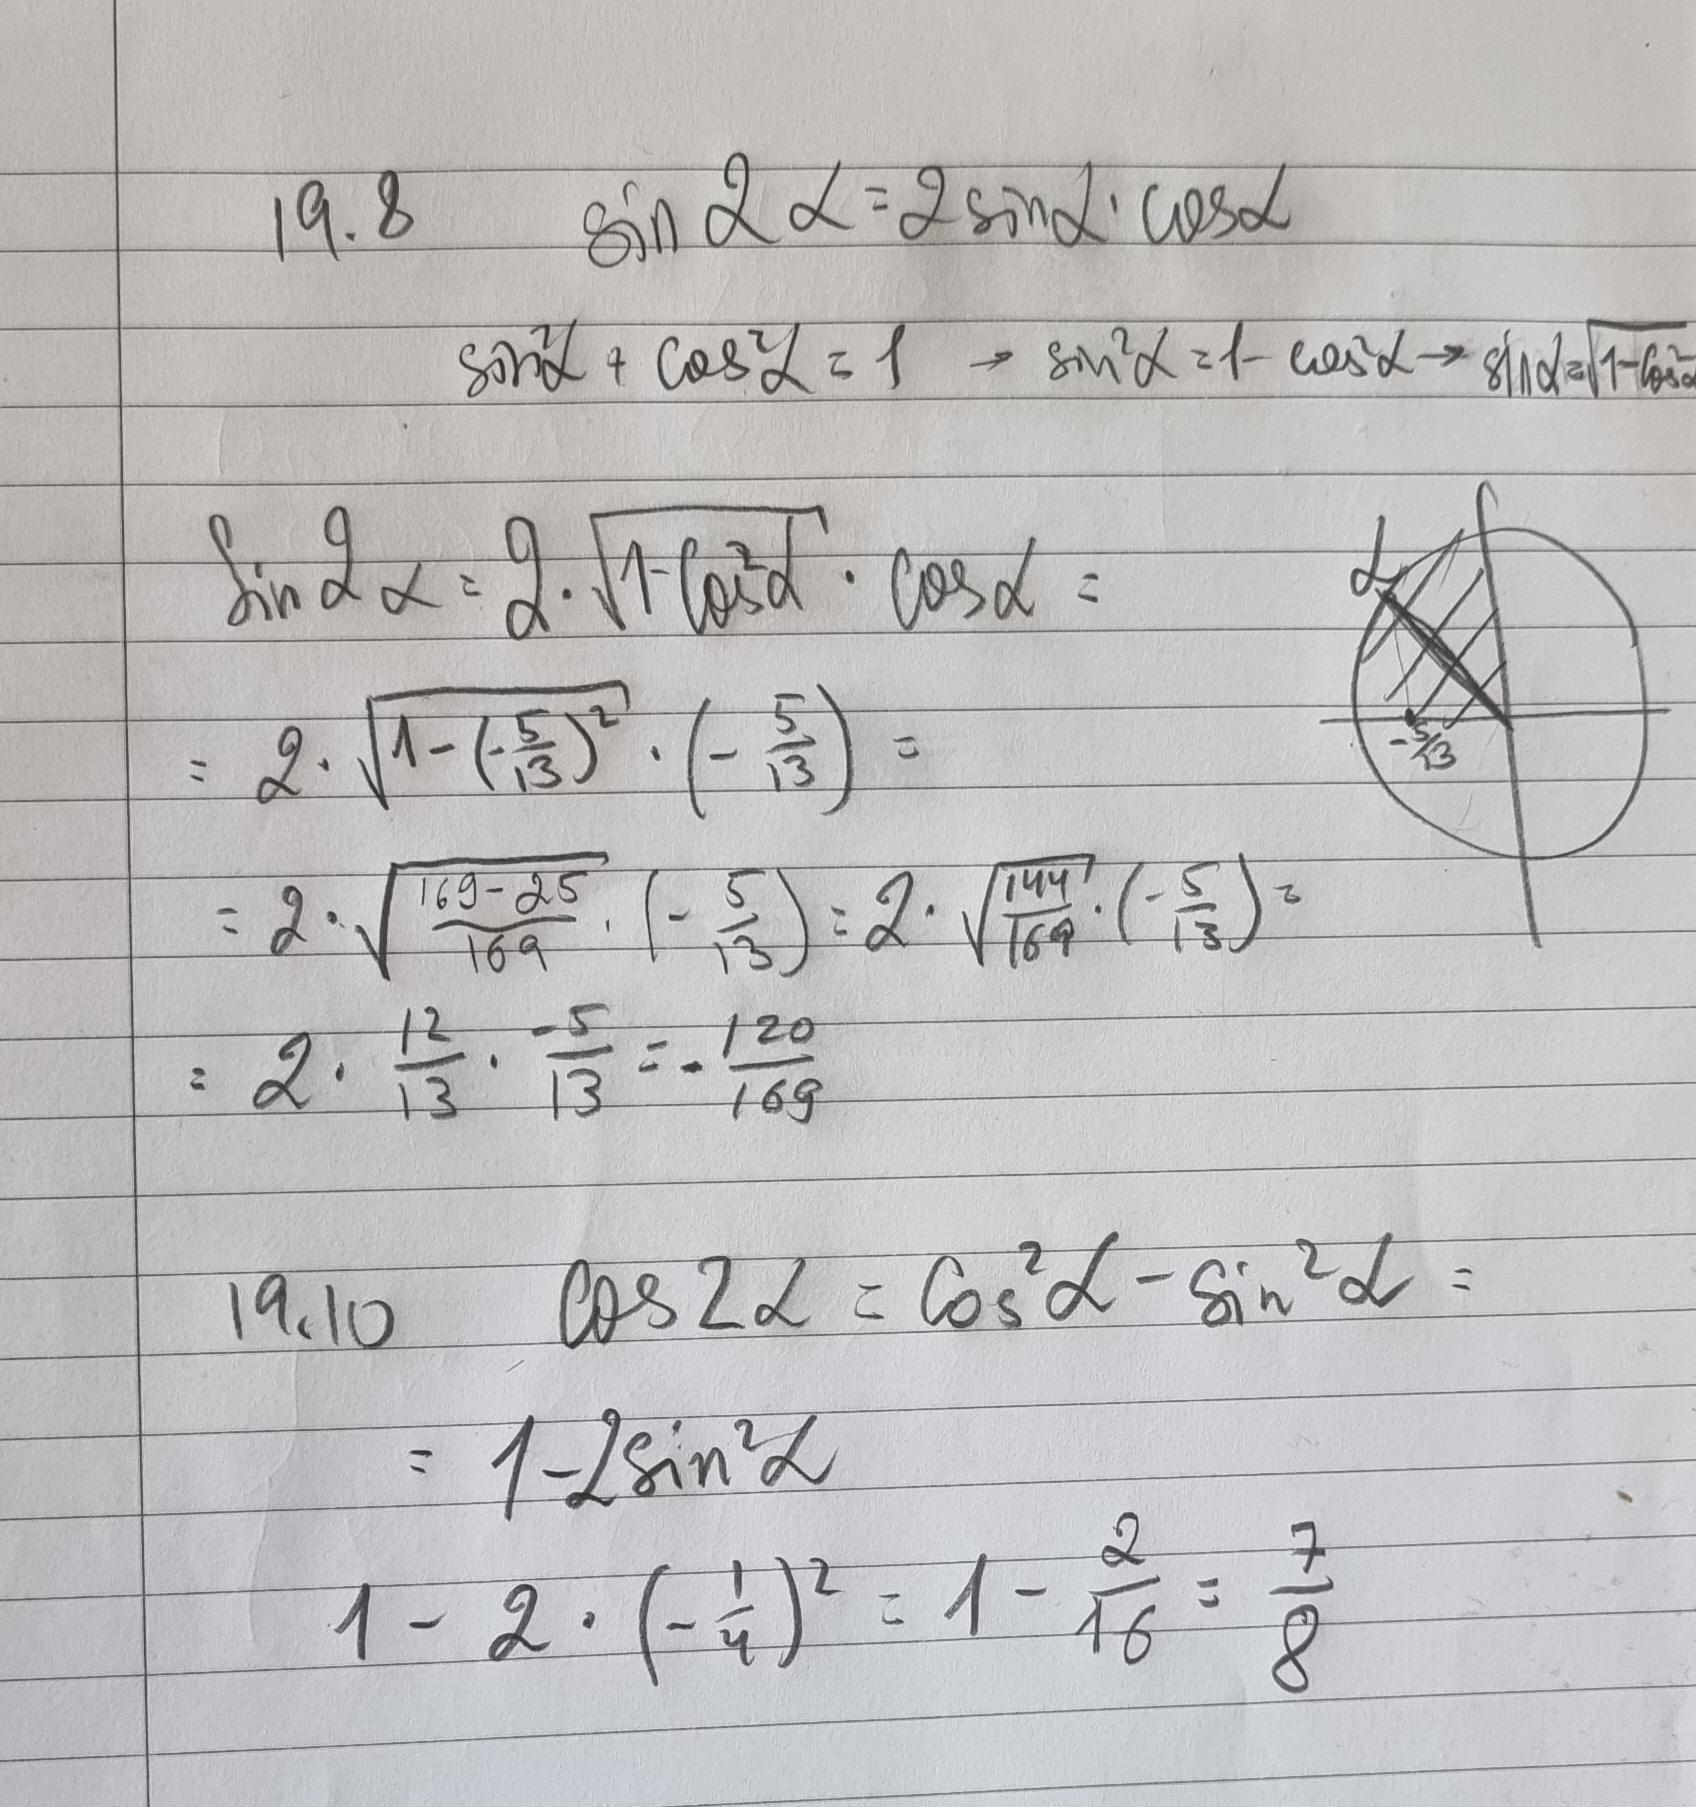 19.8 sin 2α = 2 sinα · cosα
sin²α + cos²α = 1 → sin²α = 1 - cos²α → sinα = √1-cos²α
sin 2α = 2 · √1-cos²α · cosα =
α
= 2 · √1-(-5/13)² · (-5/13) =
-5/13
= 2 · √169-25/169 · (-5/13) = 2 · √144/169 · (-5/13) =
= 2 · 12/13 · -5/13 = -120/169
19.10 cos2α = cos²α - sin²α =
= 1-2sin²α
1 - 2 · (-1/4)² = 1 - 2/16 = 7/8